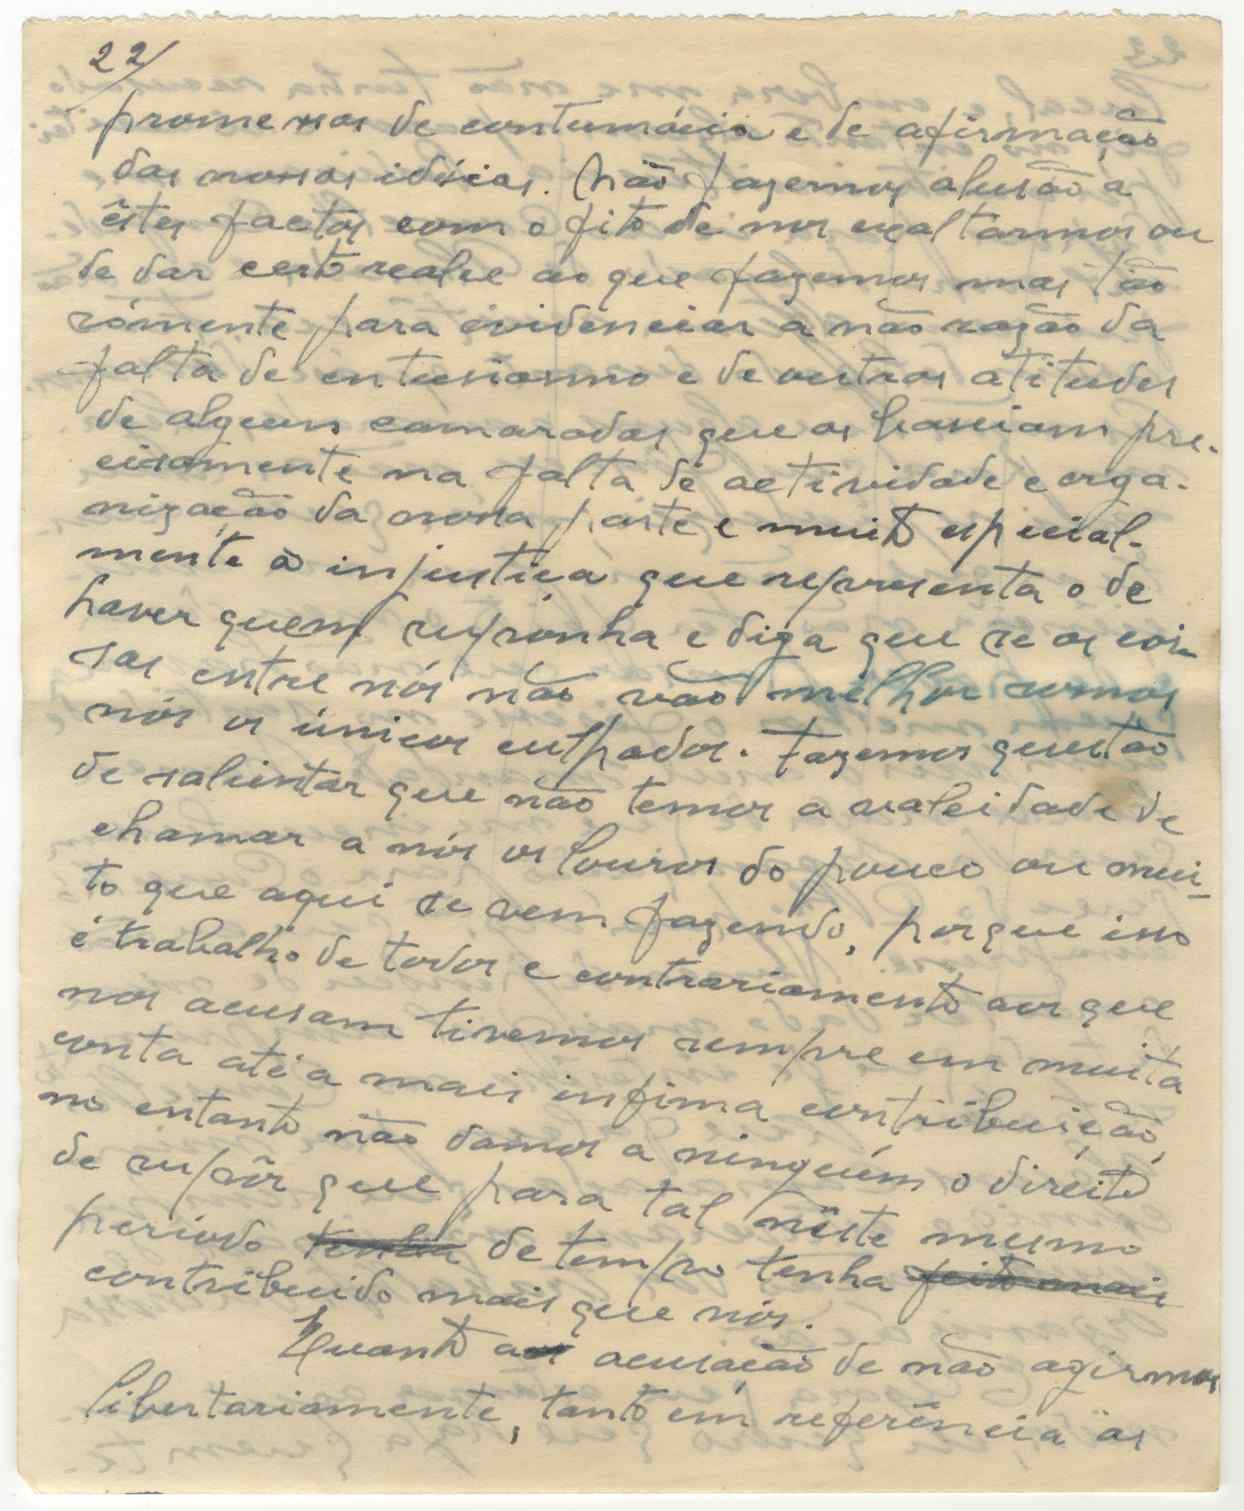 22/
promessas de contumácia e de afirmação
das nossas idéias. Não fazemos alusão a
êstes factos com o fito de nos exaltarmos ou
de dar certo realce ao que fazemos mas tão
sómente para evidenciar a não razão da
falta de entusiasmo e de outras atitudes
de alguns camaradas que as baseiam pre-
cisamente na falta de actividade e orga-
nização da nossa parte e muito especial-
mente à injustiça que representa o de
haver quem suponha e diga que se as coi-
sas entre nós não vão melhor somos
nós os únicos culpados. Fazemos questão
de salientar que não temos a valeidade de
chamar a nós os louros do pouco ou mui-
to que aqui se vem fazendo, porque isso
é trabalho de todos e contrariamente aos que
nos acusam tivemos sempre em muita
conta até a mais infima contribuição,
no entanto não damos a ninguém o direito
de supôr que para tal nêste mesmo
periodo tenha de tempo tenha feito mais
contribuido mais que nós.
Quanto a acusação de não agirmos
libertariamente, tanto em referência às